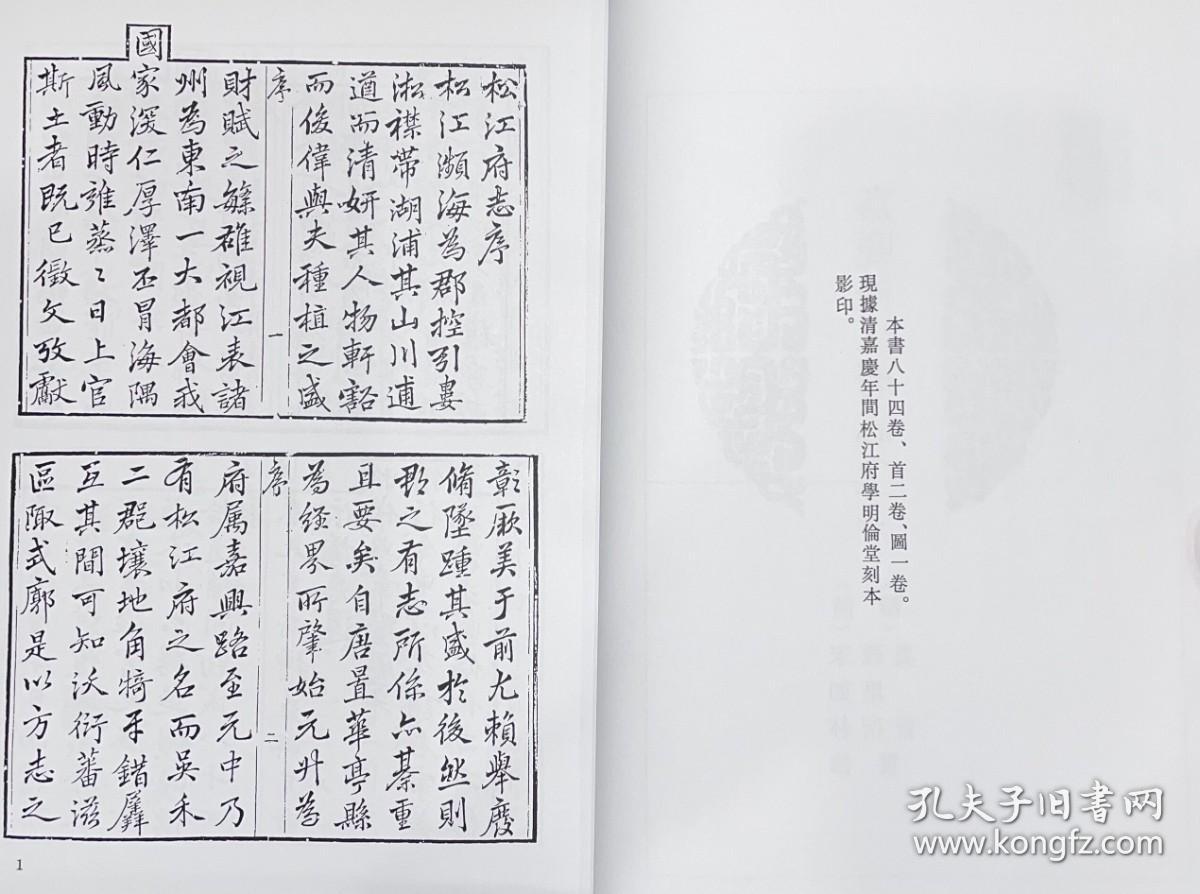 本書八十四卷、首二卷、圖一卷。
現據清嘉慶年間松江府學明倫堂刻本
影印。
松江府志序
松江瀕海為郡控引婁
淞襟帶湖浦其山川逋
而清妍其人物軒豁
而俊偉與夫種植之盛
序
一
財賦之緐雄視江表諸
州為東南一大都會我
國家深仁厚澤丕冒海隅
風動時雍蒸〻日上官
斯土者既已徵文攷獻
彰厥美于前尤賴舉廢
脩墜踵其盛於後然則
郡之有志所係亦綦重
且要矣自唐置華亭縣
為經界所肇始元升為
序
二
府属嘉興路至元中乃
有松江府之名而吳禾
二郡壤地角犄牙錯羼
互其間可知沃衍蕃滋
區陬式廓是以方志之
1
孔夫子旧书网
www.kongfz.com